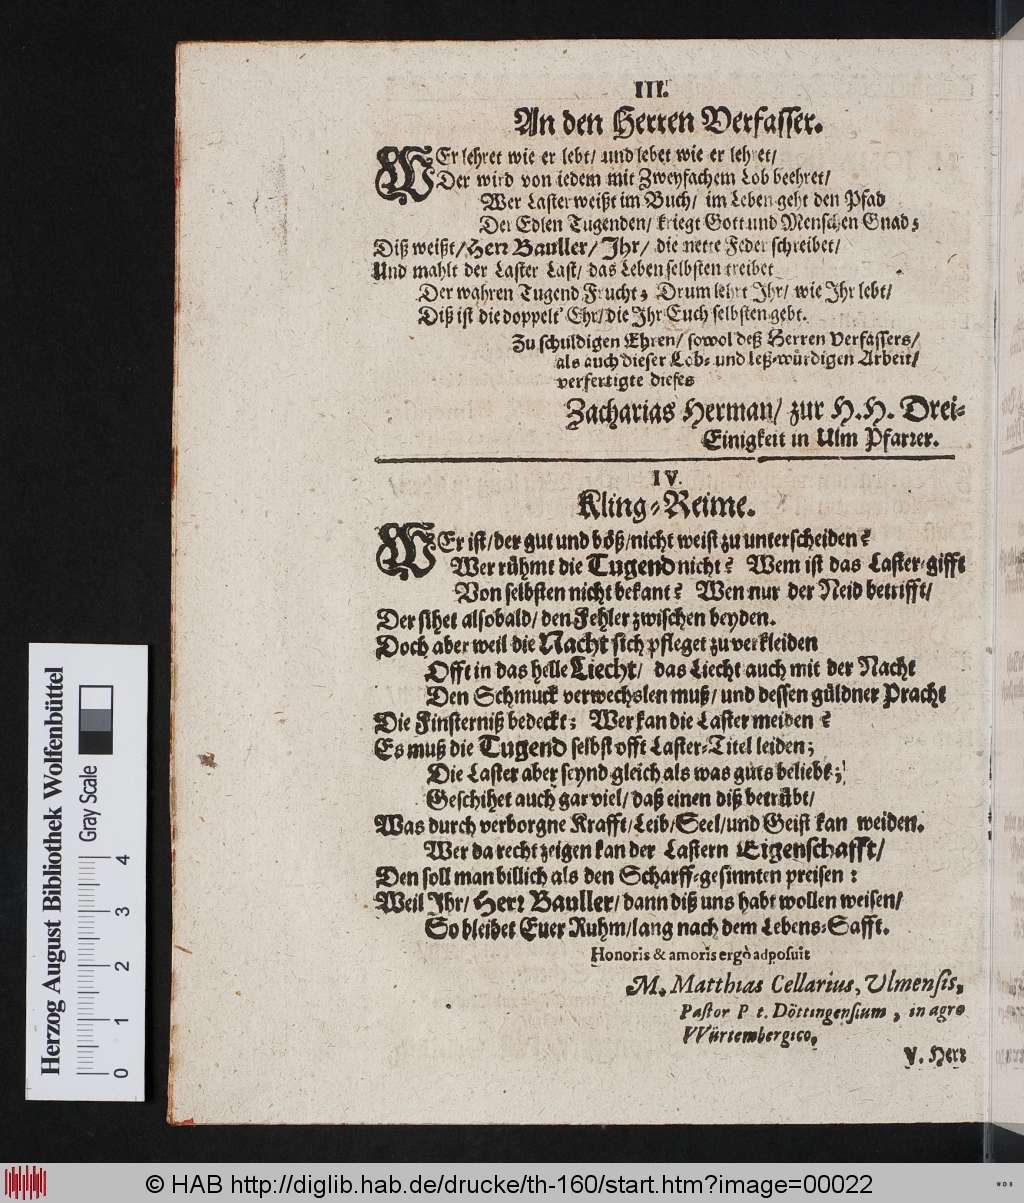 III.
An den Herren Verfasser.
WEr lehret wie er lebt/ und lebet wie er lehret/
Der wird von iedem mit Zweyfachem Lob beehret/
Wer Laster weißt im Buch/ im Leben geht den Pfad
Der Edlen Tugenden/ kriegt Gott und Menschen Gnad;
Diß weißt/ Herr Bauller/ Ihr/ die nette Feder schreibet/
Und mahlt der Laster Last/ das Leben selbsten treibet
Der wahren Tugend Frucht; Drum lehrt Ihr/ wie Ihr lebt/
Diß ist die doppelt' Ehr/ die Ihr Euch selbsten gebt.
Zu schuldigen Ehren/ sowol deß Herren Verfassers/
als auch dieser Lob- und leß-würdigen Arbeit/
verfertigte dieses
Zacharias Herman/ zur H.H. Drei-
Einigkeit in Ulm Pfarrer.
IV.
Kling-Reime.
WEr ist/ der gut und böß/ nicht weist zu unterscheiden?
Wer rühmt die Tugend nicht? Wem ist das Laster-gifft
Von selbsten nicht bekant? Wen nur der Neid betrifft/
Der sihet alsobald/ den Fehler zwischen beyden.
Doch aber weil die Nacht sich pfleget zu verkleiden
Offt in das helle Liecht/ das Liecht auch mit der Nacht
Den Schmuck verwechslen muß/ und dessen güldner Pracht
Die Finsterniß bedeckt; Wer kan die Laster meiden?
Es muß die Tugend selbst offt Laster-Titel leiden;
Die Laster aber seynd gleich als was guts beliebt;
Geschihet auch gar viel/ daß einen diß betrübt/
Was durch verborgne Krafft/ Leib/ Seel/ und Geist kan weiden.
Wer da recht zeigen kan der Lastern Eigenschafft/
Den soll man billich als den Scharff-gesinnten preisen:
Weil Ihr/ Herr Bauller/ dann diß uns habt wollen weisen/
So bleibet Euer Ruhm/ lang nach dem Lebens-Safft.
Honoris & amoris ergò adposuit
M. Matthias Cellarius, Ulmensis,
Pastor P. t. Döttingensium, in agro
VVürtembergico.
V. Herr
Herzog August Bibliothek Wolfenbüttel
Gray Scale
0 1 2 3 4
© HAB http://diglib.hab.de/drucke/th-160/start.htm?image=00022